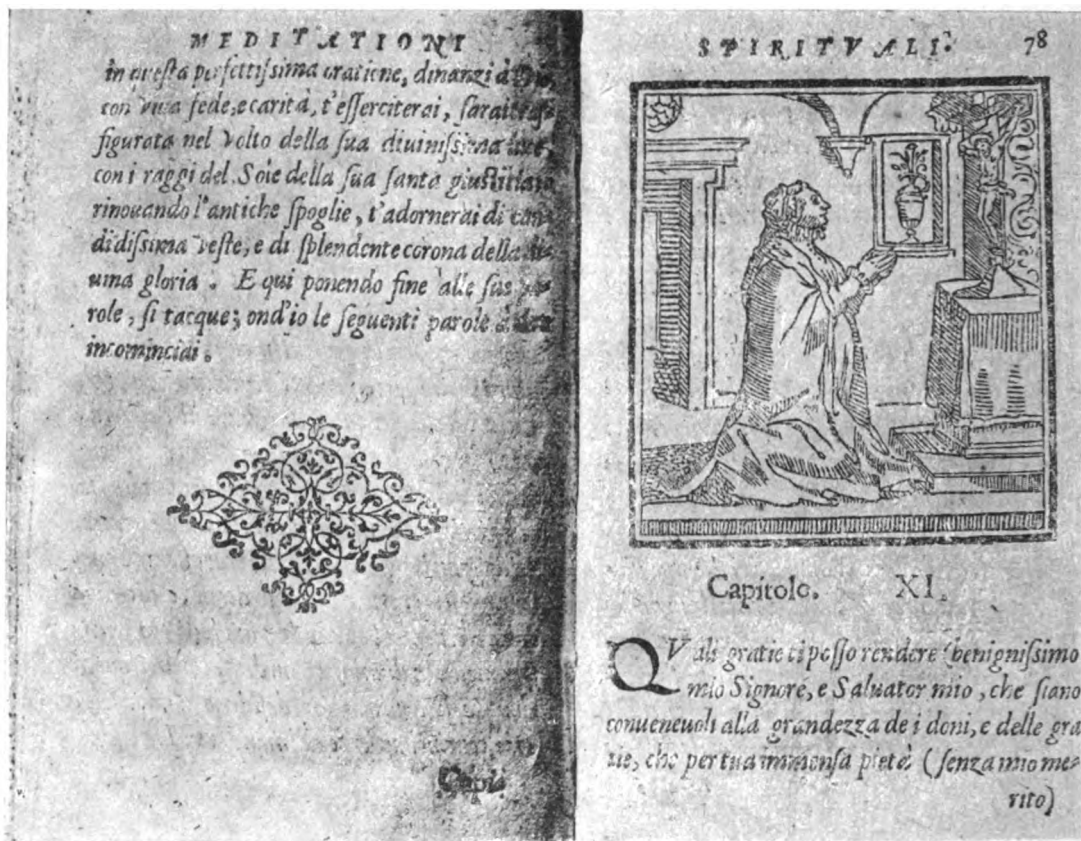 MEDITATIONI
in questa perfettissima oratione, dinanzi à
con viua fede, e carità, t'esserciterai, sarai
figurata nel Volto della sua diuinissima
con i raggi del Sole della sua santa giustitia
rinouando l'antiche spoglie, t'adornerai di can-
didissima veste, e di splendente corona della di-
uina gloria. E qui ponendo fine alle sue pa-
role, si tacque; ond'io le seguenti parole à
incominciai.
SPIRITVALI. 78
Capitolo. XI.
QVali gratie ti posso rendere (benignissimo
mio Signore, e Saluator mio, che siano
conueneuoli alla grandezza de i doni, e delle gra
tie, che per tua immensa pietà (senza mio me-
rito)